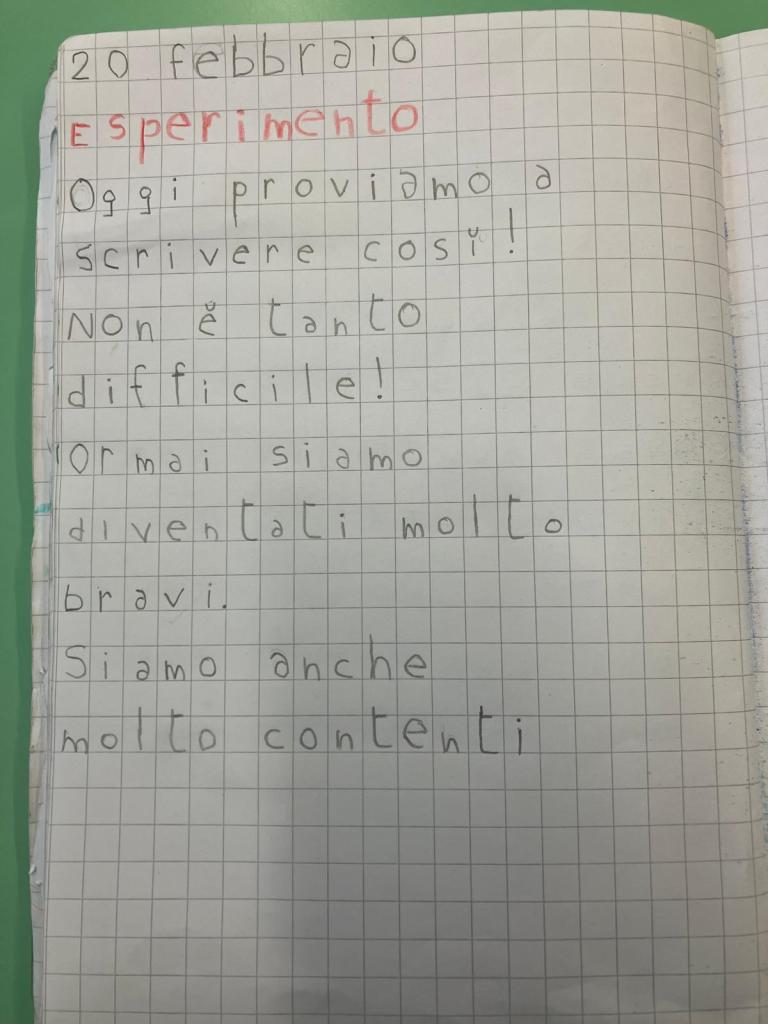 20 febbraio
Esperimento
Oggi proviamo a
scrivere così!
Non è tanto
difficile!
Ormai siamo
diventati molto
bravi.
Siamo anche
molto contenti